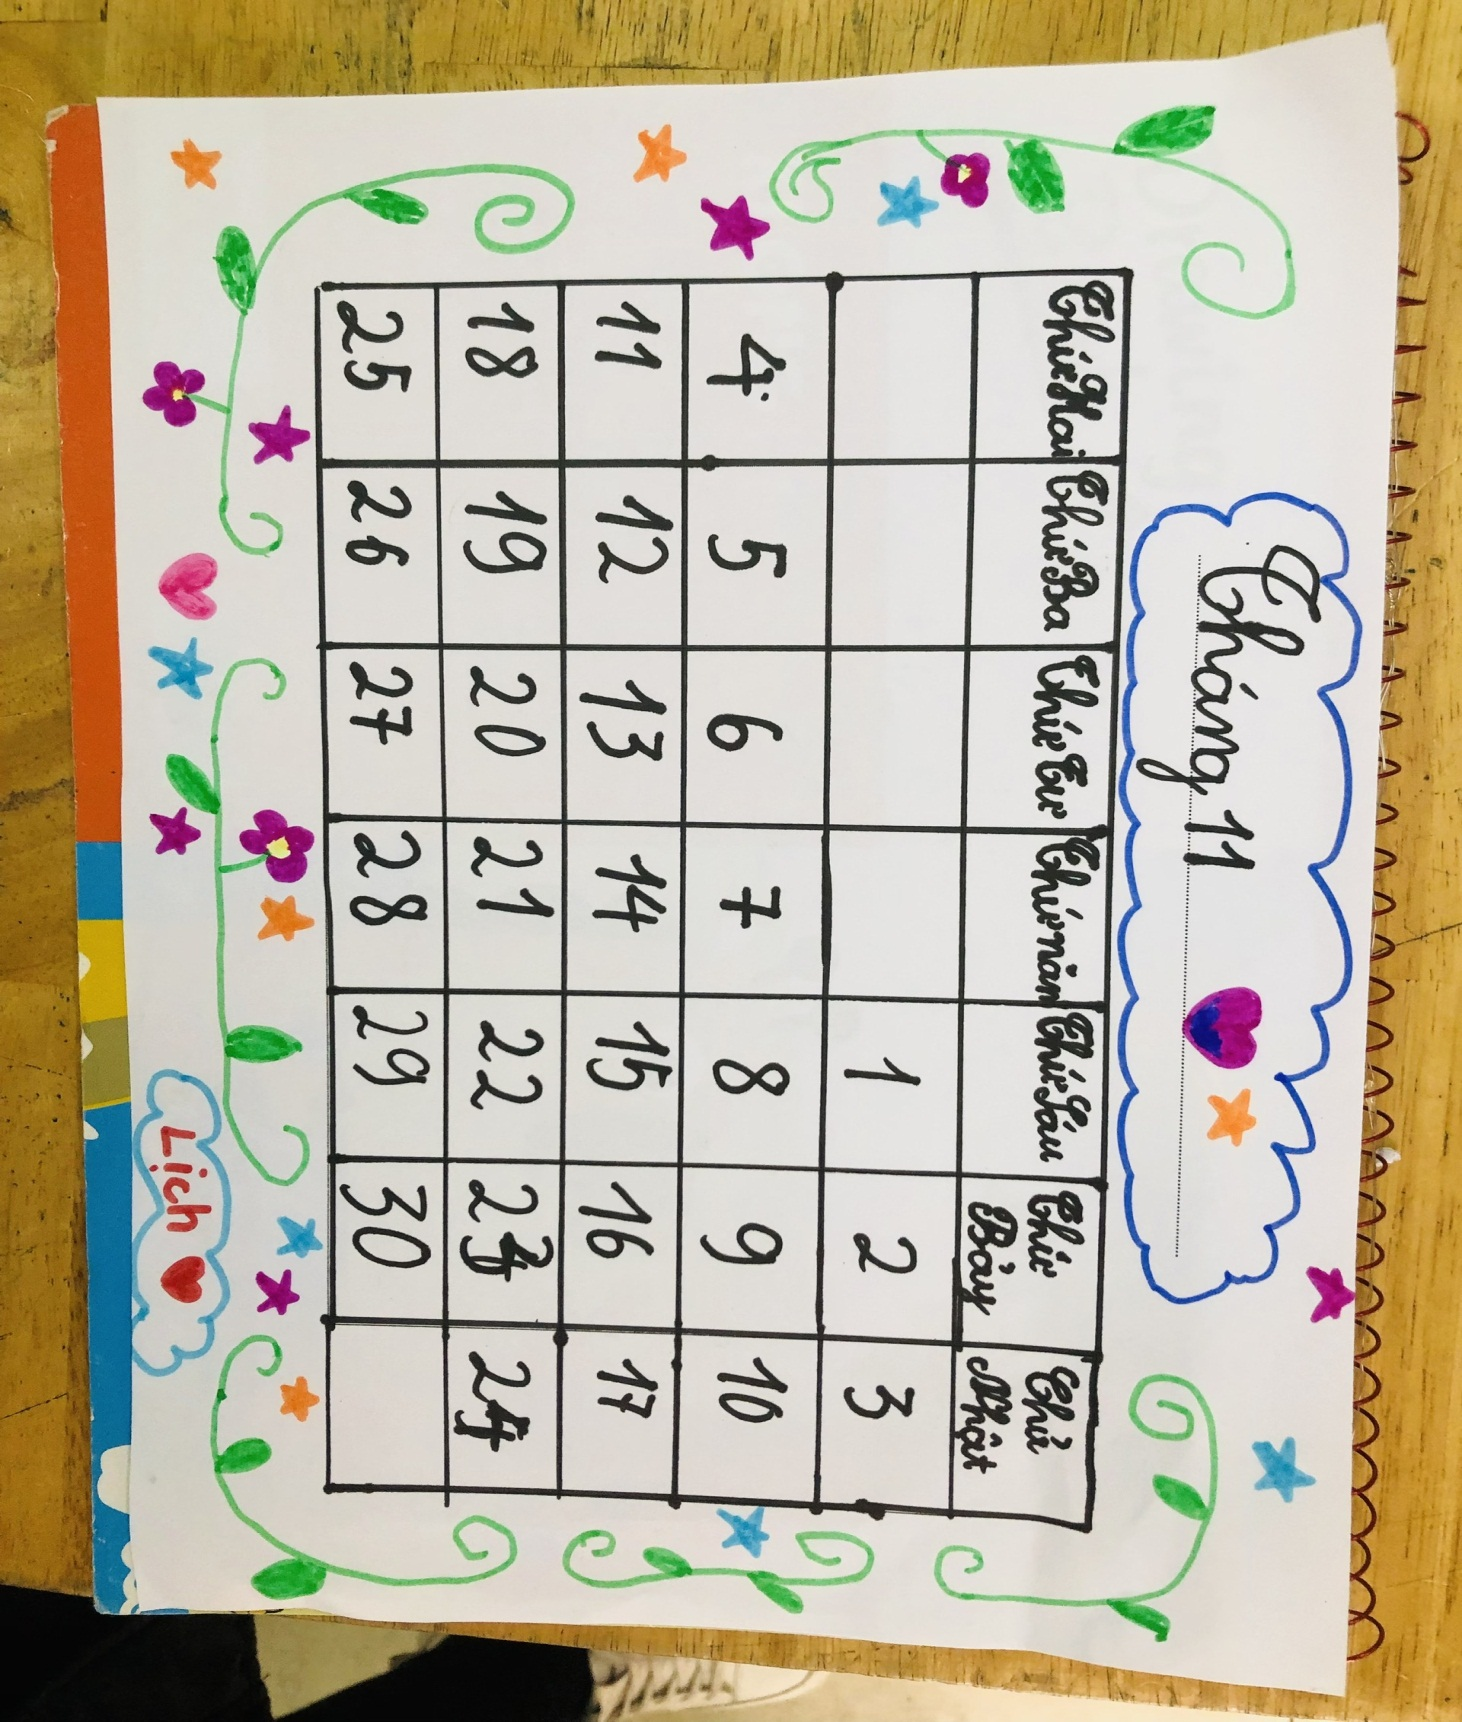 Tháng 11
Thứ Hai Thứ Ba Thứ Tư Thứ năm Thứ Sáu Thứ Bảy Chủ Nhật
1 2 3
4 5 6 7 8 9 10
11 12 13 14 15 16 17
18 19 20 21 22 23 24
25 26 27 28 29 30
Lịch